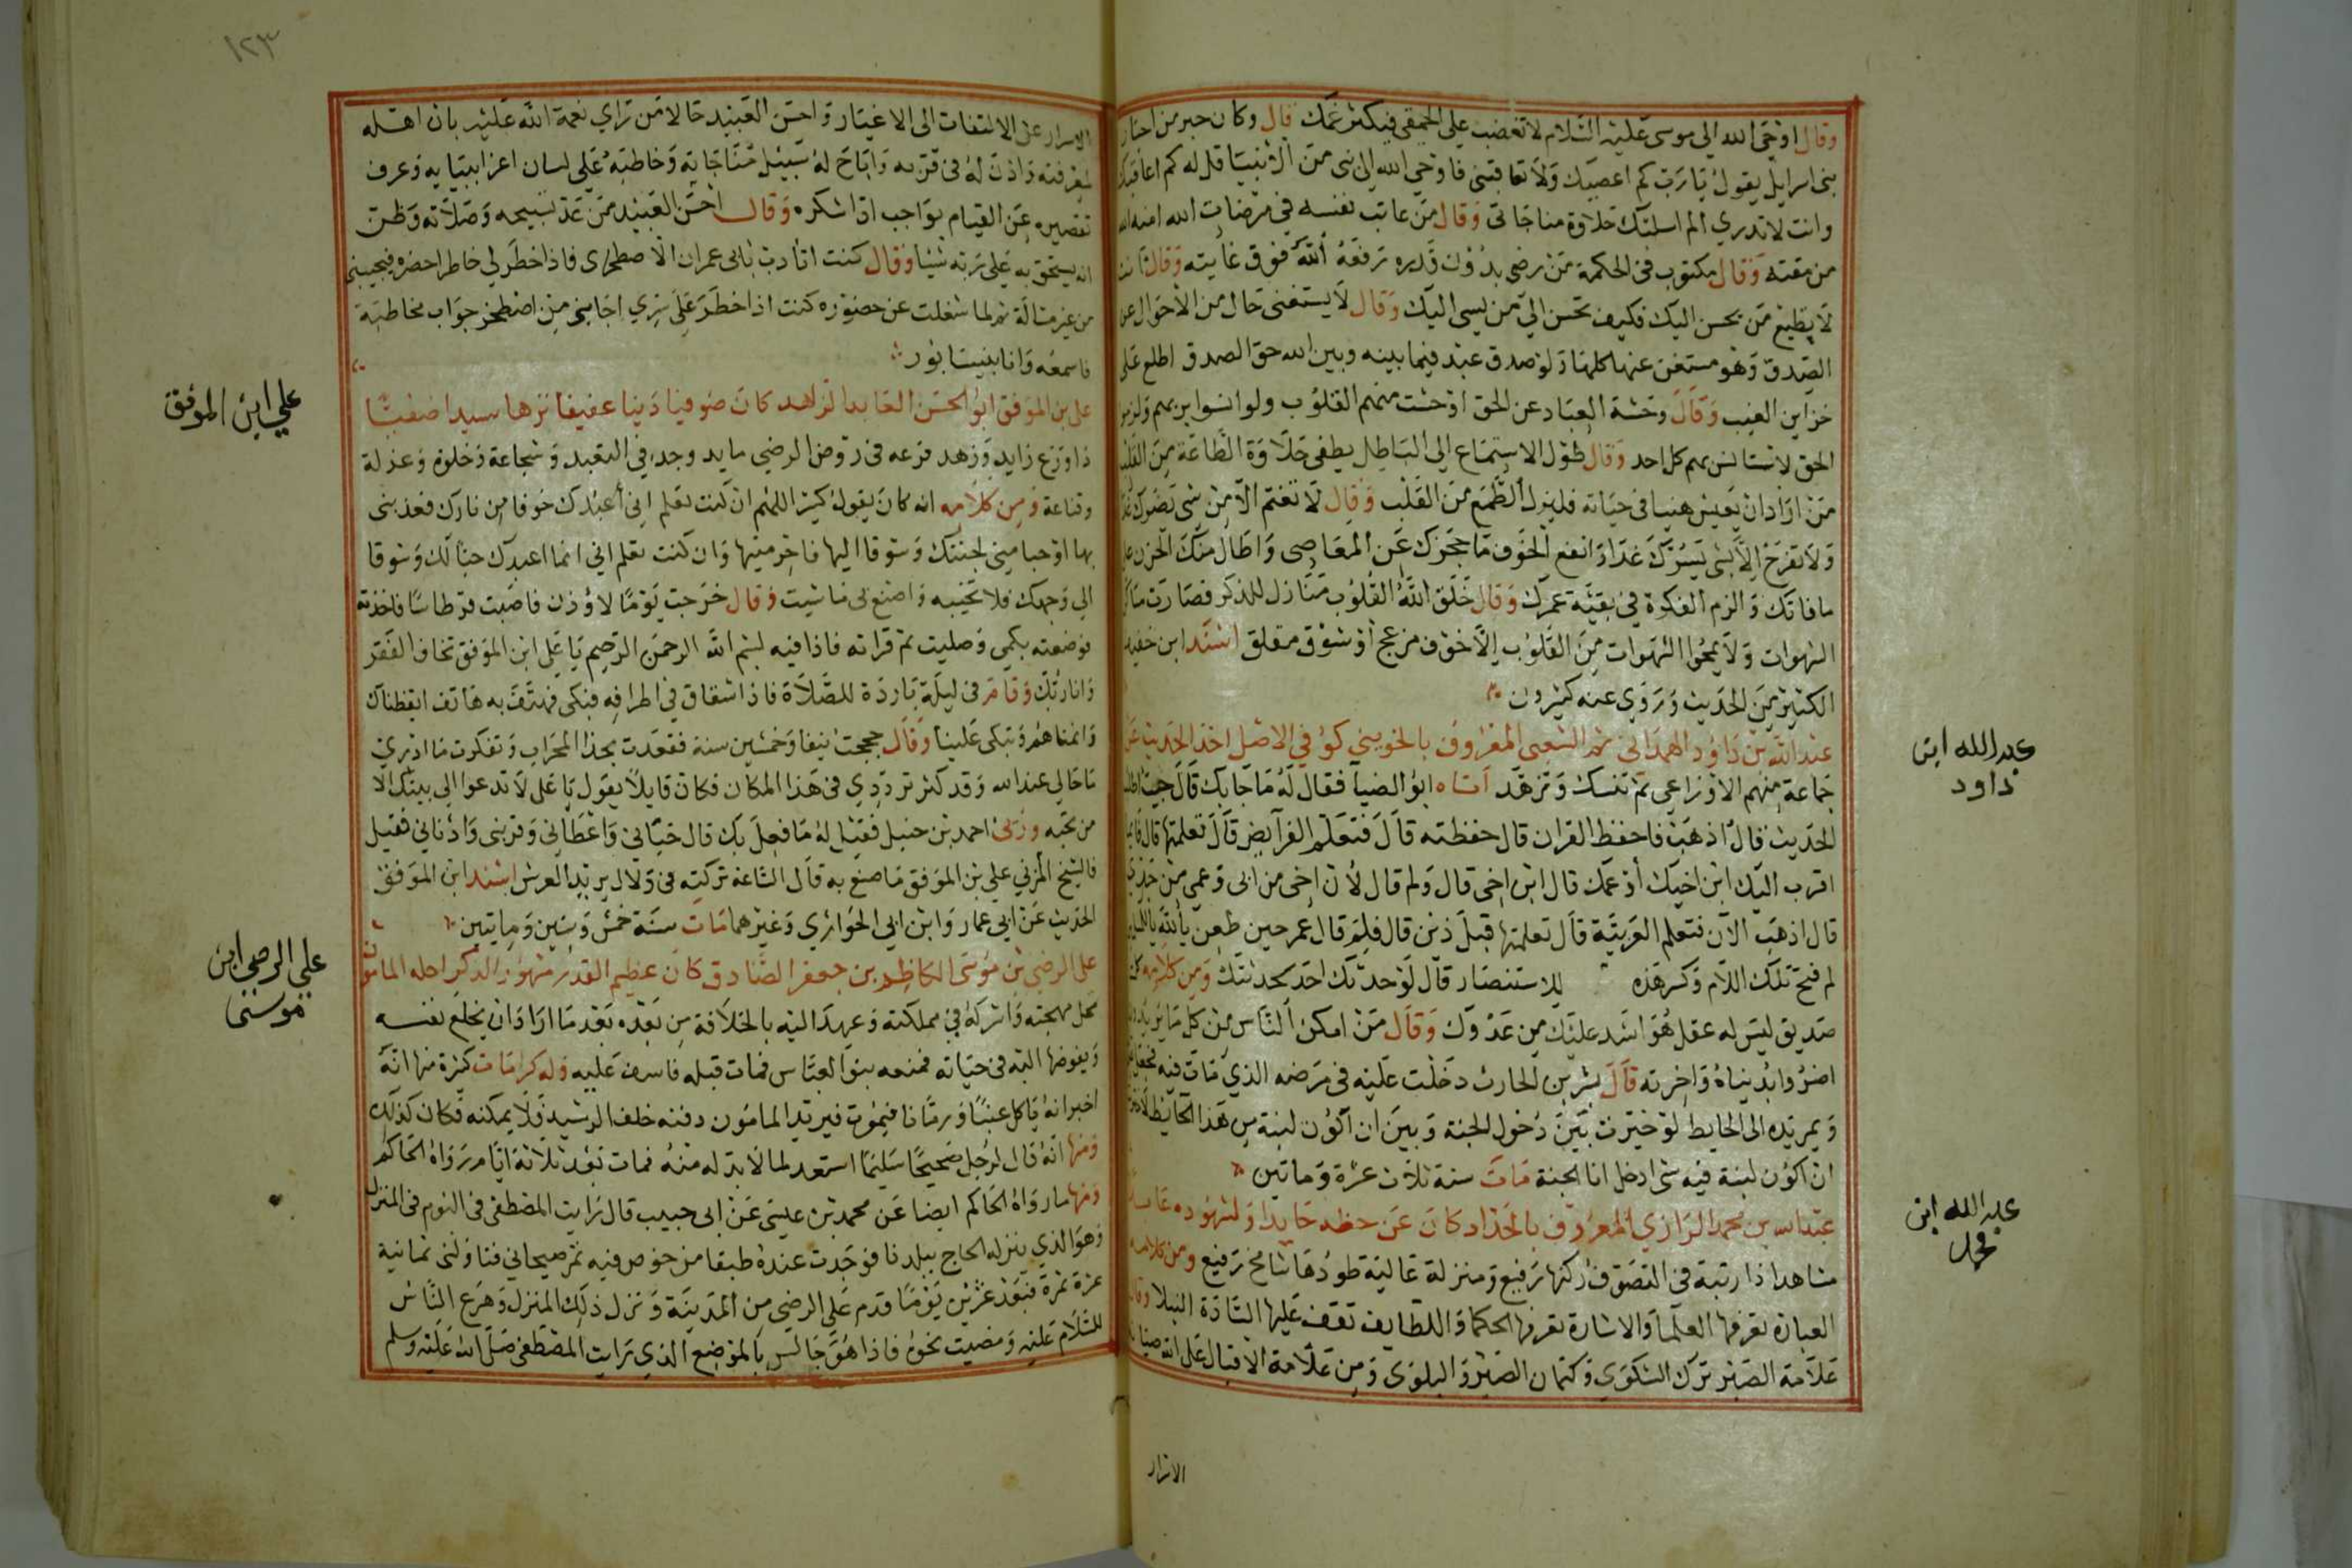 وقال اوحى الله الى موسى عليه السلام لا تغضب على الحمقى فيكثر غمك قال وكان حبر من احبار
بنى اسرايل يقول يا رب كم اعصيك ولا تعاقبنى فاوحى الله الى نبى من الانبيا قل له كم اعاقبك
وانت لا تدري الم اسلبك حلاوة مناجاتى وقال من عاتب نفسه فى مرضات الله امنه الله
من مقته وقال مكتوب فى الحكمة من رضى بدون قدره رفعه الله فوق غايته وقال انت
لا تطيع من يحسن اليك فكيف تحسن الى من يسى اليك وقال لا يستغنى حال من الاحوال عن
الصدق وهو مستغن عنها كلها ولو صدق عبد فيما بينه وبين الله حق الصدق اطلع على
خزاين الغيب وقال وحشة العباد عن الحق اوحشت منهم القلوب ولو انسوا بربهم ولزموا
الحق لاستانس بهم كل احد وقال طول الاستماع الى الباطل يطفى حلاوة الطاعة من القلب
من اراد ان يعيش هنيا فى حياته فليزل الطمع من القلب وقال لا تغتم الا من شى يضرك غدا
ولا تفرح الا بشى يسرك غدا وانفع الخوف ما حجزك عن المعاصى واطال منك الحزن على
ما فاتك والزم الفكرة فى بقية عمرك وقال خلق الله القلوب منازل للذكر فصارت مساكن
الشهوات ولا يمحوا الشهوات من القلوب الا خوف مزعج او شوق مقلق اسند ابن خفيف
الكثير من الحديث وروى عنه كثيرون
عبد الله بن داود الهمدانى ثم الشعبى المعروف بالخريبي كوفي الاصل اخذ الحديث عن
جماعة منهم الاوزاعي ثم تنسك وتزهد اتاه ابو الضيا فقال له ما جا بك قال جيت اطلب
الحديث قال اذهب فاحفظ القران قال حفظته قال فتعلم الفرايض قال تعلمتها قال فايما
اقرب اليك ابن اخيك او عمك قال ابن اخى قال ولم قال لان اخى من ابى وعمي من جدي
قال اذهب الآن فتعلم العربية قال تعلمتها قبل ذين قال فلم قال عمر حين طعن يا لله يا للمسلمين
لم فتح تلك اللام وكسر هذه للاستنصار قال لو حدثك احد لحدثتك ومن كلامه كل
صديق ليس له عقل هو اشد عليك من عدوك وقال من امكن الناس من كل ما يريدون
اضروا بدنياه واخرته قال بشر بن الحارث دخلت عليه فى مرضه الذي مات فيه فجعل
ويمر يده الى الحايط لو خيرت بين دخول الجنة وبين ان اكون لبنة من هذا الحايط لاخترت
ان اكون لبنة فيه متى ادخل انا الجنة مات سنة ثلاث عشرة وماتين
عبد الله بن محمد الرازي المعروف بالحداد كان عن حظه حايدا ولشهوده
مشاهدا ذا رتبة فى التصوف ركنها رفيع ومنزلة عالية طودها شامخ رفيع ومن كلامه
العبارة تعرفها العلما والاشارة تعرفها الحكما واللطايف تقف عليها السادة النبلا وقال
علامة الصبر ترك الشكوى وكتمان الضر والبلوى ومن علامة الاقبال على الله صيانة
الاسرار
عبد الله ابن
داود
عبد الله ابن
محمد
١٢٣
الاسرار عن الالتفات الى الاغيار واحسن العبيد حالا من راي نعمة الله عليه بان اهله
لمعرفته واذن له فى قربه واباح له سبيل مناجاته وخاطبه على لسان اعز انبيايه وعرف
تقصيره عن القيام بواجب اذا شكره وقال اخس العبيد من عد تسبيحه وصلاته وظن
انه يستحق به على ربه شيئا وقال كنت اتادب بابى عمران الاصطخرى فاذا خطر لي خاطر احضره فيجيبنى
من غير مسالة ثم لما شغلت عن حضوره كنت اذا خطر على سري اجابنى من اصطخر جواب مخاطبة
فاسمعه وانا بنيسابور
على بن الموفق ابو الحسن العابد الزاهد كان صوفيا دينا عفيفا نزها سيدا ضعيفا
ذا ورع زايد وزهد فرعه فى روض الرضى مايد وجد في التعبد وشجاعة وخلوة وعزلة
وقناعة ومن كلامه انه كان يقول كثيرا اللهم ان كنت تعلم انى أعبدك خوفا من نارك فعذبنى
بها او حبا مينى لجنتك وشوقا اليها فاحرمنيها وان كنت تعلم اني انما اعبدك حبا لك وشوقا
الى وجهك فلا تخيبه واصنع بى ما شيت وقال خرجت يوما لاوذن فاصبت قرطاسا فاخذته
فوضعته بكمي وصليت ثم قراته فاذا فيه بسم الله الرحمن الرحيم يا على ابن الموفق تخاف الفقر
وانا ربك وقام فى ليلة باردة للصلاة فاذا شقاق في اطرافه فبكى فهتف به هاتف ايقظناك
وانمناهم وتبكى علينا وقال حججت نيفا وخمسين سنة فقعدت بحذا المحراب وتفكرت ما ادري
ما حالي عند الله وقد كثر ترددي فى هذا المكان فكان قايلا يقول يا على لا تدعوا الى بيتك الا
من تحبه ورئى احمد بن حنبل فقيل له ما فعل بك قال حبانى واعطاني وقربنى وادناني فقيل
فالشيخ المزني علي بن الموفق ما صنع به قال الساعة تركته فى دلال يريد العرش اسند ابن الموفق
الحديث عن ابي عمار وابن ابي الحوارى وغيرهما مات سنة خمس وستين وماتين
على الرضى بن موسى الكاظم بن جعفر الصادق كان عظيم القدر مشهور الذكر احله المامون
محل مهجته واشركه في مملكته وعهد اليه بالخلافة من بعده بعد ما اراد ان يخلع نفسه
ويفوضها اليه فى حياته فمنعه بنو العباس فمات قبله فاسف عليه وله كرامات كثرة منها انه
اخبر انه ياكل عنبا ورمانا فيموت فيريد المامون دفنه خلف الرشيد ولا يمكنه فكان كذلك
ومنها انه قال لرجل صحيحا سليما استعد لما لا بد له منه فمات بعد ثلاثة ايام رواه الحاكم
ومنها ما رواه الحاكم ايضا عن محمد بن عيسى عن ابى حبيب قال رايت المصطفى فى النوم فى المنزل
وهو الذي ينزله الحاج ببلدنا فوجدت عنده طبقا من خوص فيه تمر صيحاني فناولنى ثمانية
عشرة تمرة فبعد عشرين يوما قدم على الرضى من المدينة ونزل ذلك المنزل وهرع الناس
للسلام عليه ومضيت نحوه فاذا هو جالس بالموضع الذي رايت المصطفى صلى الله عليه وسلم
علي ابن الموفق
علي الرضى ابن
موسى